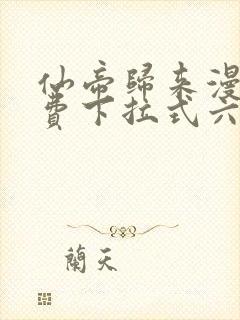 仙帝歸來漫
費下拉式六
蘭天